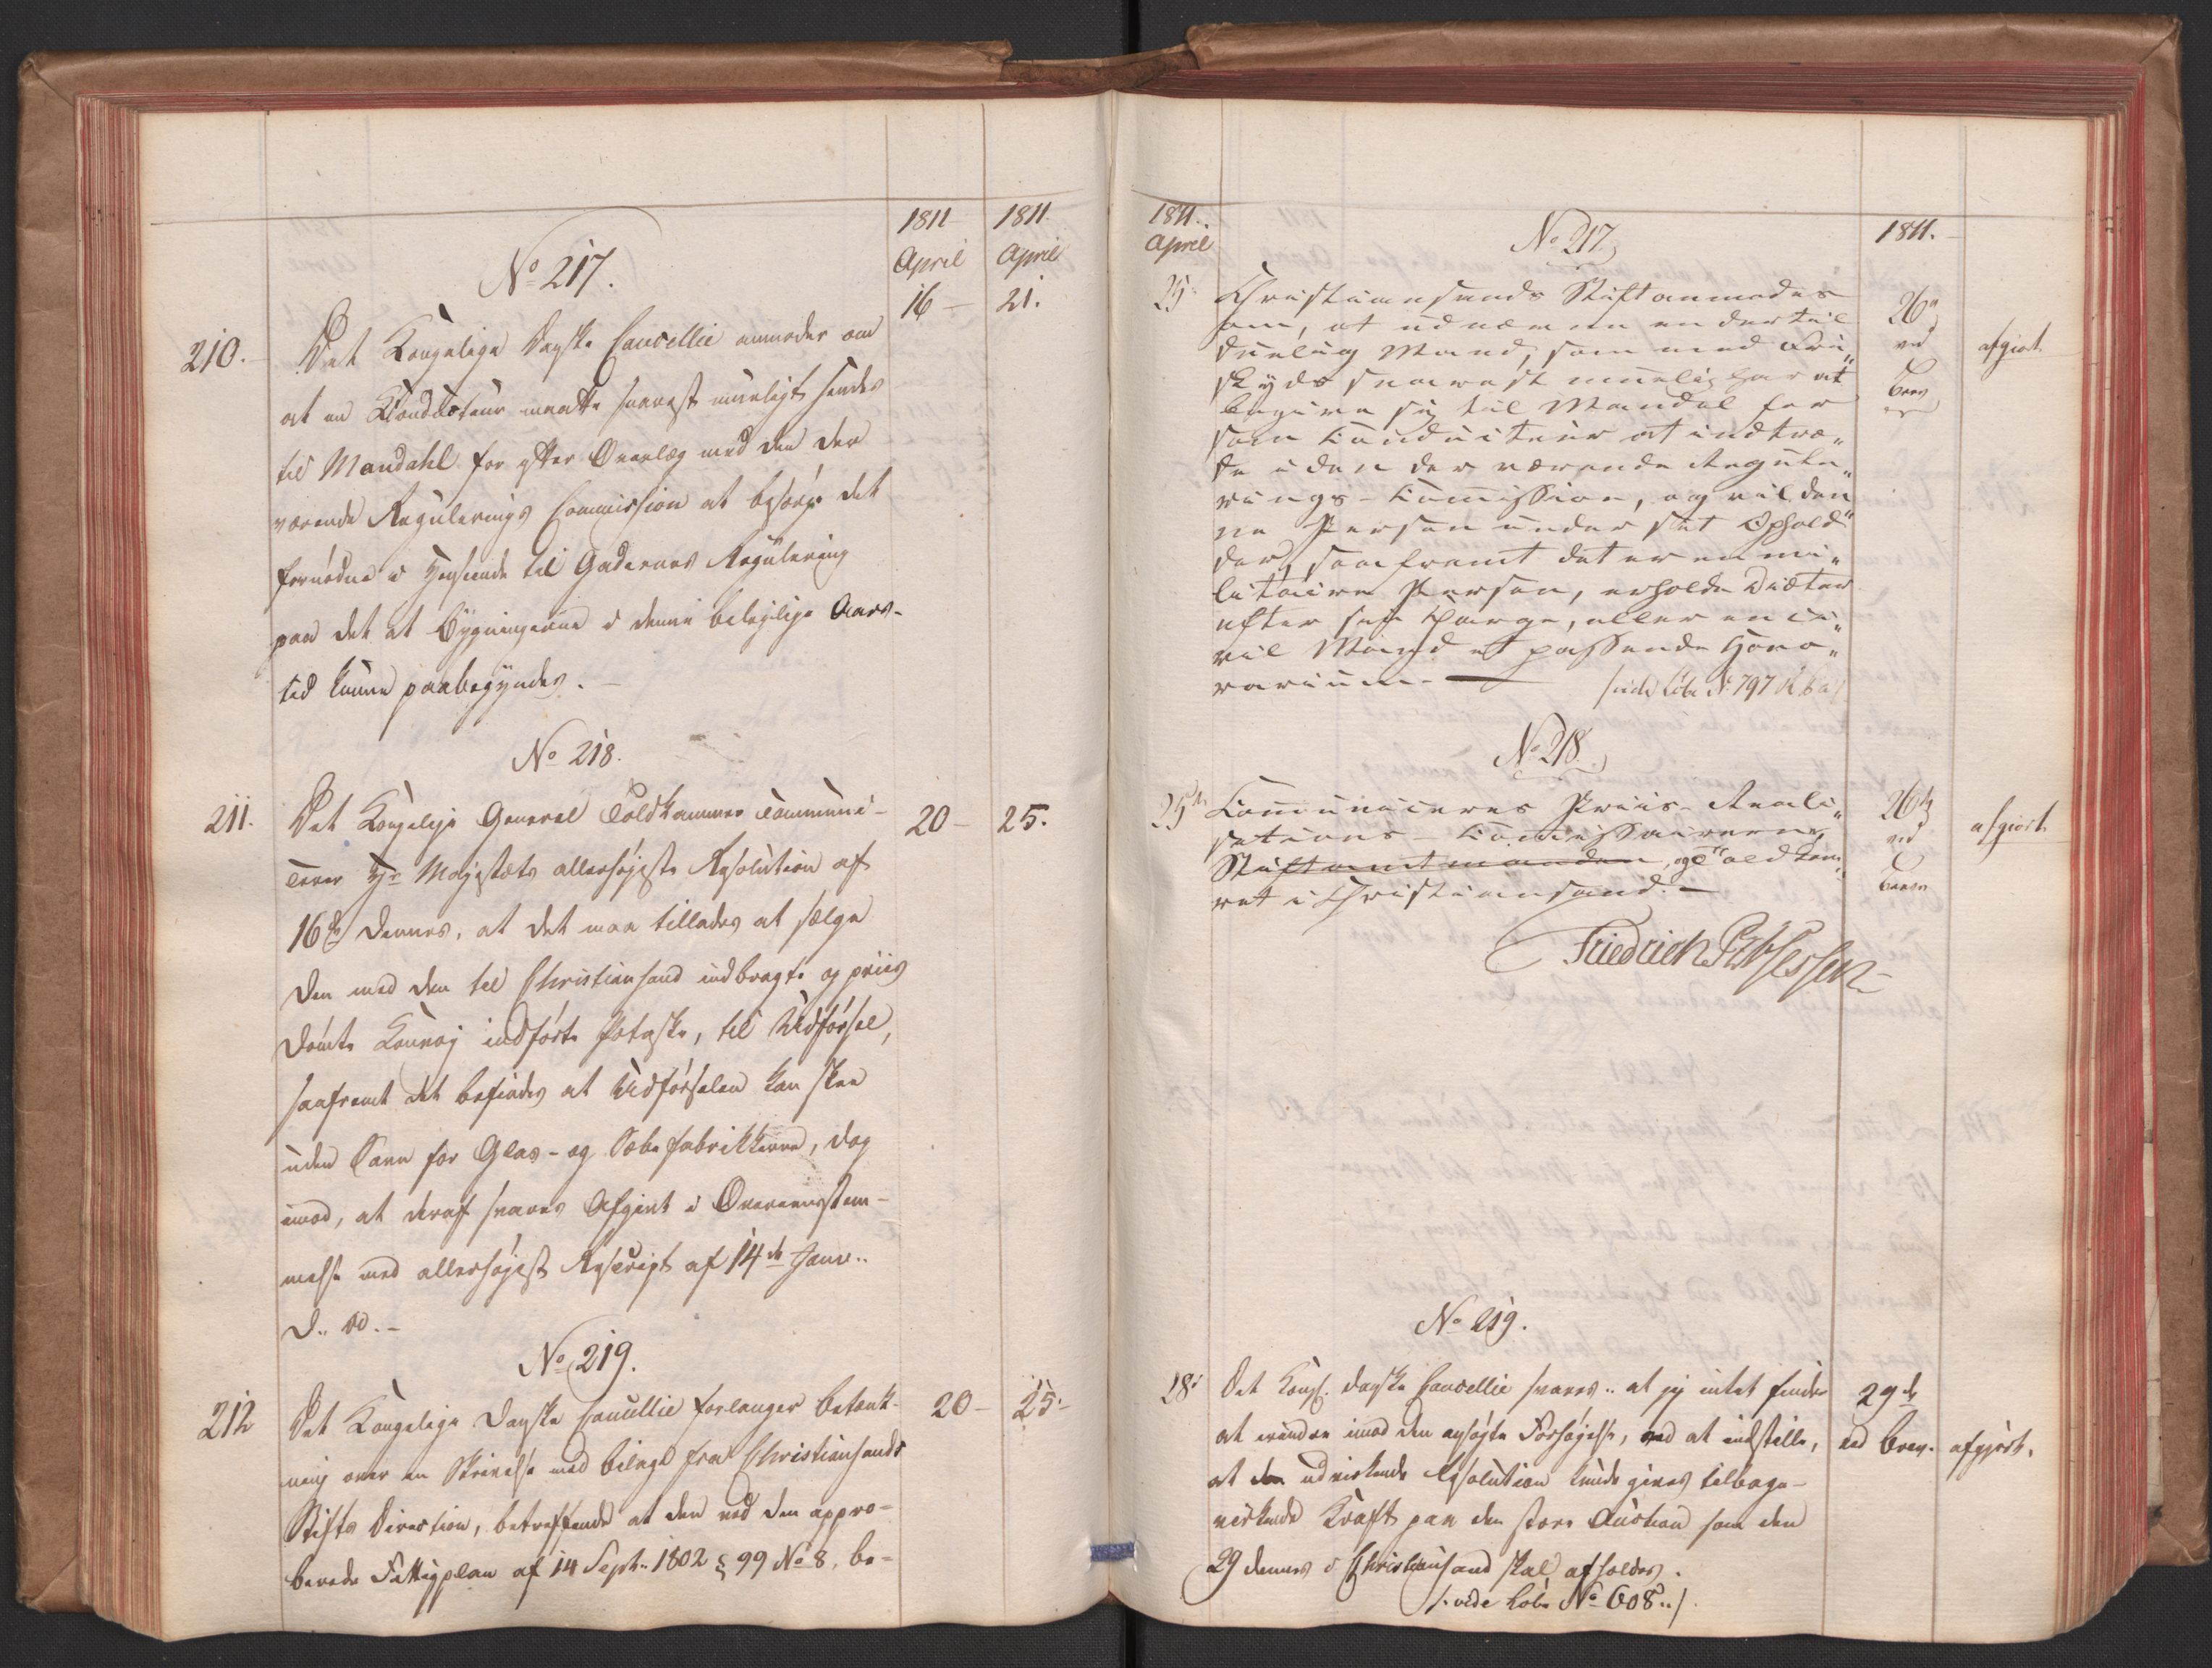 1811 April
1811 April
No 217.
16 — 21.
210. Det Kongelige Danske Cancellie anmoder om
at en Conducteur maatte snarest mueligt sendes
til Mandahl for efter Overlæg med den der
værende Regulerings Commission at besørge det
fornødne i Henseende til Gadernes Regulering
paa det at Bygningerne i denne beleilige Aars-
tid kunne paabegyndes.
No 218.
211. Det Kongelige General Toldkammer Communi-
20 — 25.
cerer Hs Majestæts allerhøjeste Resolution af
16de dennes, at det maa tillades at sælge
den med den til Christiansand indbragte og priis
dømte Convoj indførte Potaske, til Udførsel,
saafremt det befindes at Udførselen kan skee
uden Savn for Glas- og Sæbe fabrikkerne, dog
imod, at deraf svares Afgivt i Overeensstem-
melse med allerhøjest Rescript af 14de Janr.
d. A.
No 219.
212 Det Kongelige Danske Cancellie forlanger betænk-
20 — 25.
ning over en Skrivelse med bilage fra Christiansands
Stifts Direction, betreffende at den ved den appro-
berede Fattigplan af 14 Septr. 1802 § 99 No 8. be-
1811.
April
No 217
1811.
25 Christiansands Stift anmodes
om, at udnævne en dertil
duelig Mand, som med Frie
skyds snarest muelig har at
begive sig til Mandal for
som Conducteur at indtræ-
de i den der værende Regule-
rings-Commission, og vil den
ne Person under sit Ophold
der, saafremt det er en mi-
litaire Person, erholde Diæter
efter sin Charge, eller en ci-
vil Mand et passende Hono-
rarium.
/vide Cobe No 797
26de
ved
Brev
afgiort
No 218.
25de Communiceres Priis-Reali-
sations-Commissairerne
Stiftamtmanden og Toldkam-
ret i Christiansand.
26de
ved
Breve
afgiort.
No 219.
28. Det Kongl. danske Cancellie svares at jeg intet finder
at erindre imod den ansøgte Forhøjelse, ved at indstille,
at den udvirkende Resolution kunde gives tilbage-
virkende Kraft paa den store Auction som den
29 dennes i Christiansand skal afholdes.
/: vide Cobe No 608 :/
29de
ved brev.
afgjort.